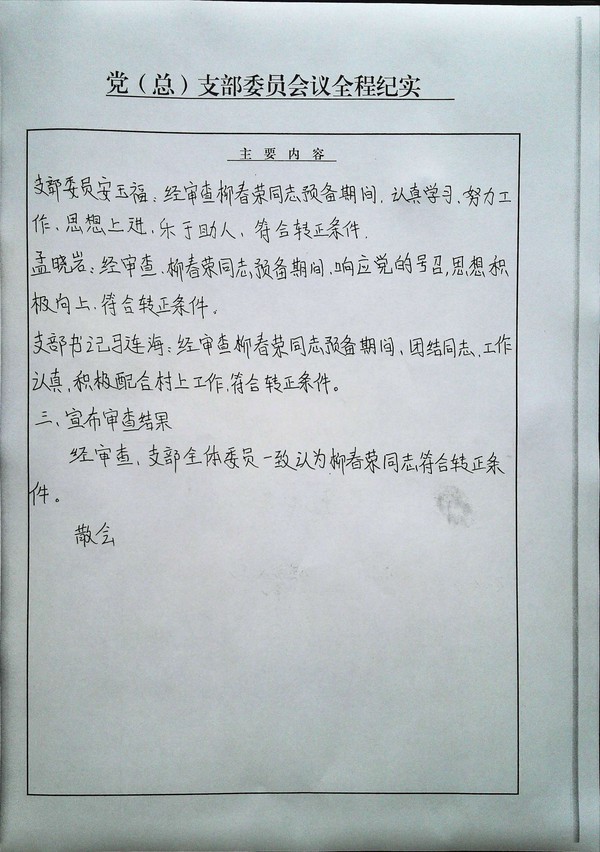 党（总）支部委员会议全程纪实
主要内容
支部委员安玉福：经审查柳春荣同志预备期间，认真学习、努力工
作、思想上进、乐于助人、符合转正条件.
孟晓岩：经审查、柳春荣同志预备期间、响应党的号召,思想积
极向上、符合转正条件。
支部书记马连海：经审查柳春荣同志预备期间、团结同志、工作
认真、积极配合村上工作、符合转正条件。
三、宣布审查结果
经审查、支部全体委员一致认为柳春荣同志符合转正条
件。
散会